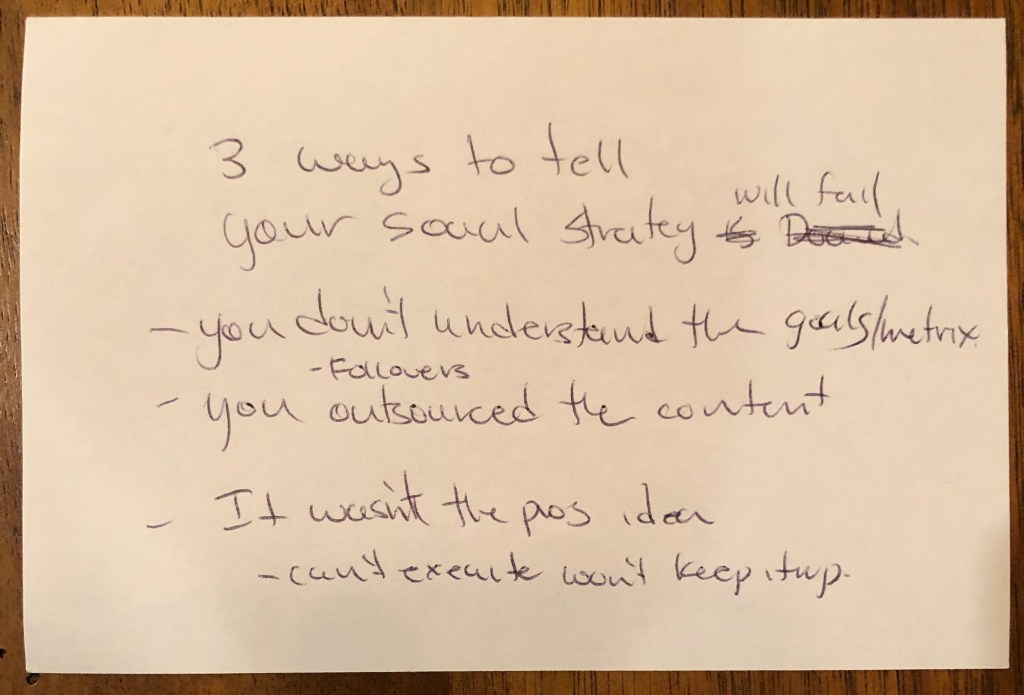 3 ways to tell
your social strategy will fail
- you don't understand the goals/metrix.
- Followers
- you outsourced the content
- It wasn't the pros idea
- can't execute won't keep it up.